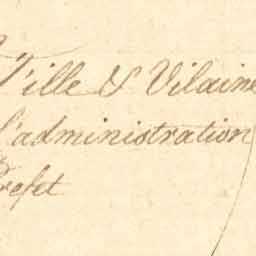 d'ille & Vilaine
l'administration
Prefet